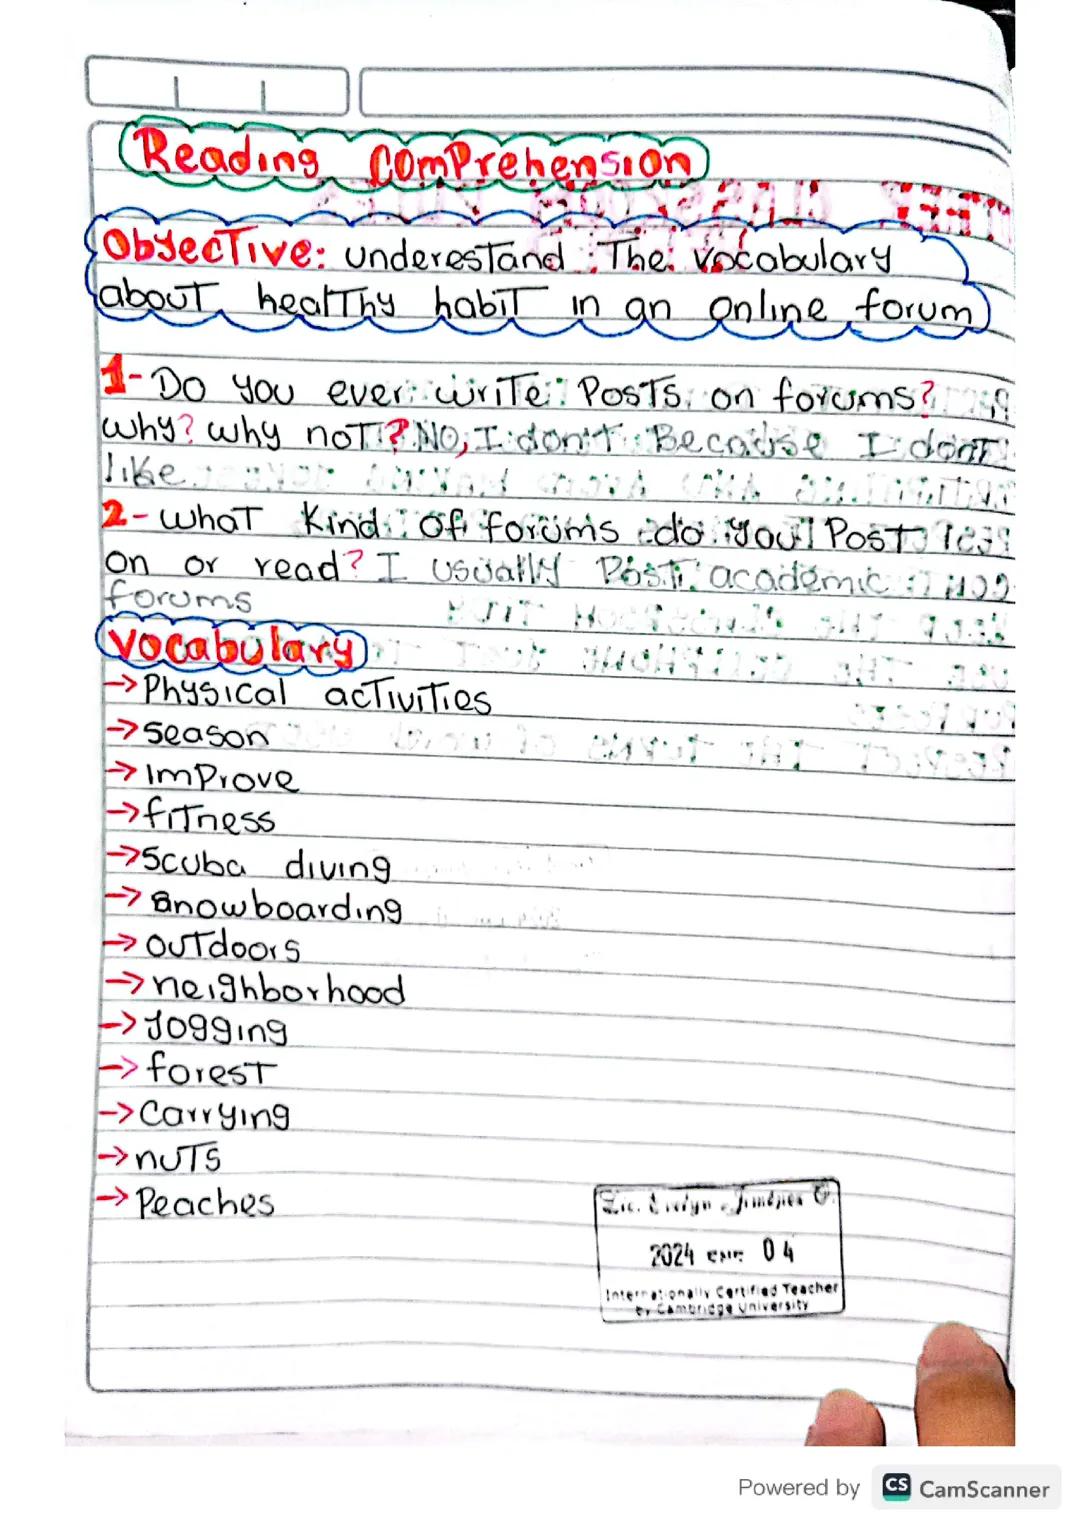 Reading Comprehension
Objective: underestand The vocabulary
about healthy habit in an online forum
1- Do you ever write Posts on forums?
why? why not? NO, I don't. Because I dont
like
2- what Kind of forums do you Post
on or read? I usually Post academic
forums
vocabulary
→ Physical activities
→ season
→ improve
→ fitness
→ Scuba diving
→ Snowboarding
→ outdoors
→ neighborhood
→ Jogging
→ forest
→ Carrying
→ nuts
→ Peaches
Lic. Evelyn Jiménez
2024 ENE 04
Internationally Certified Teacher
by Cambridge University
Powered by CS CamScanner